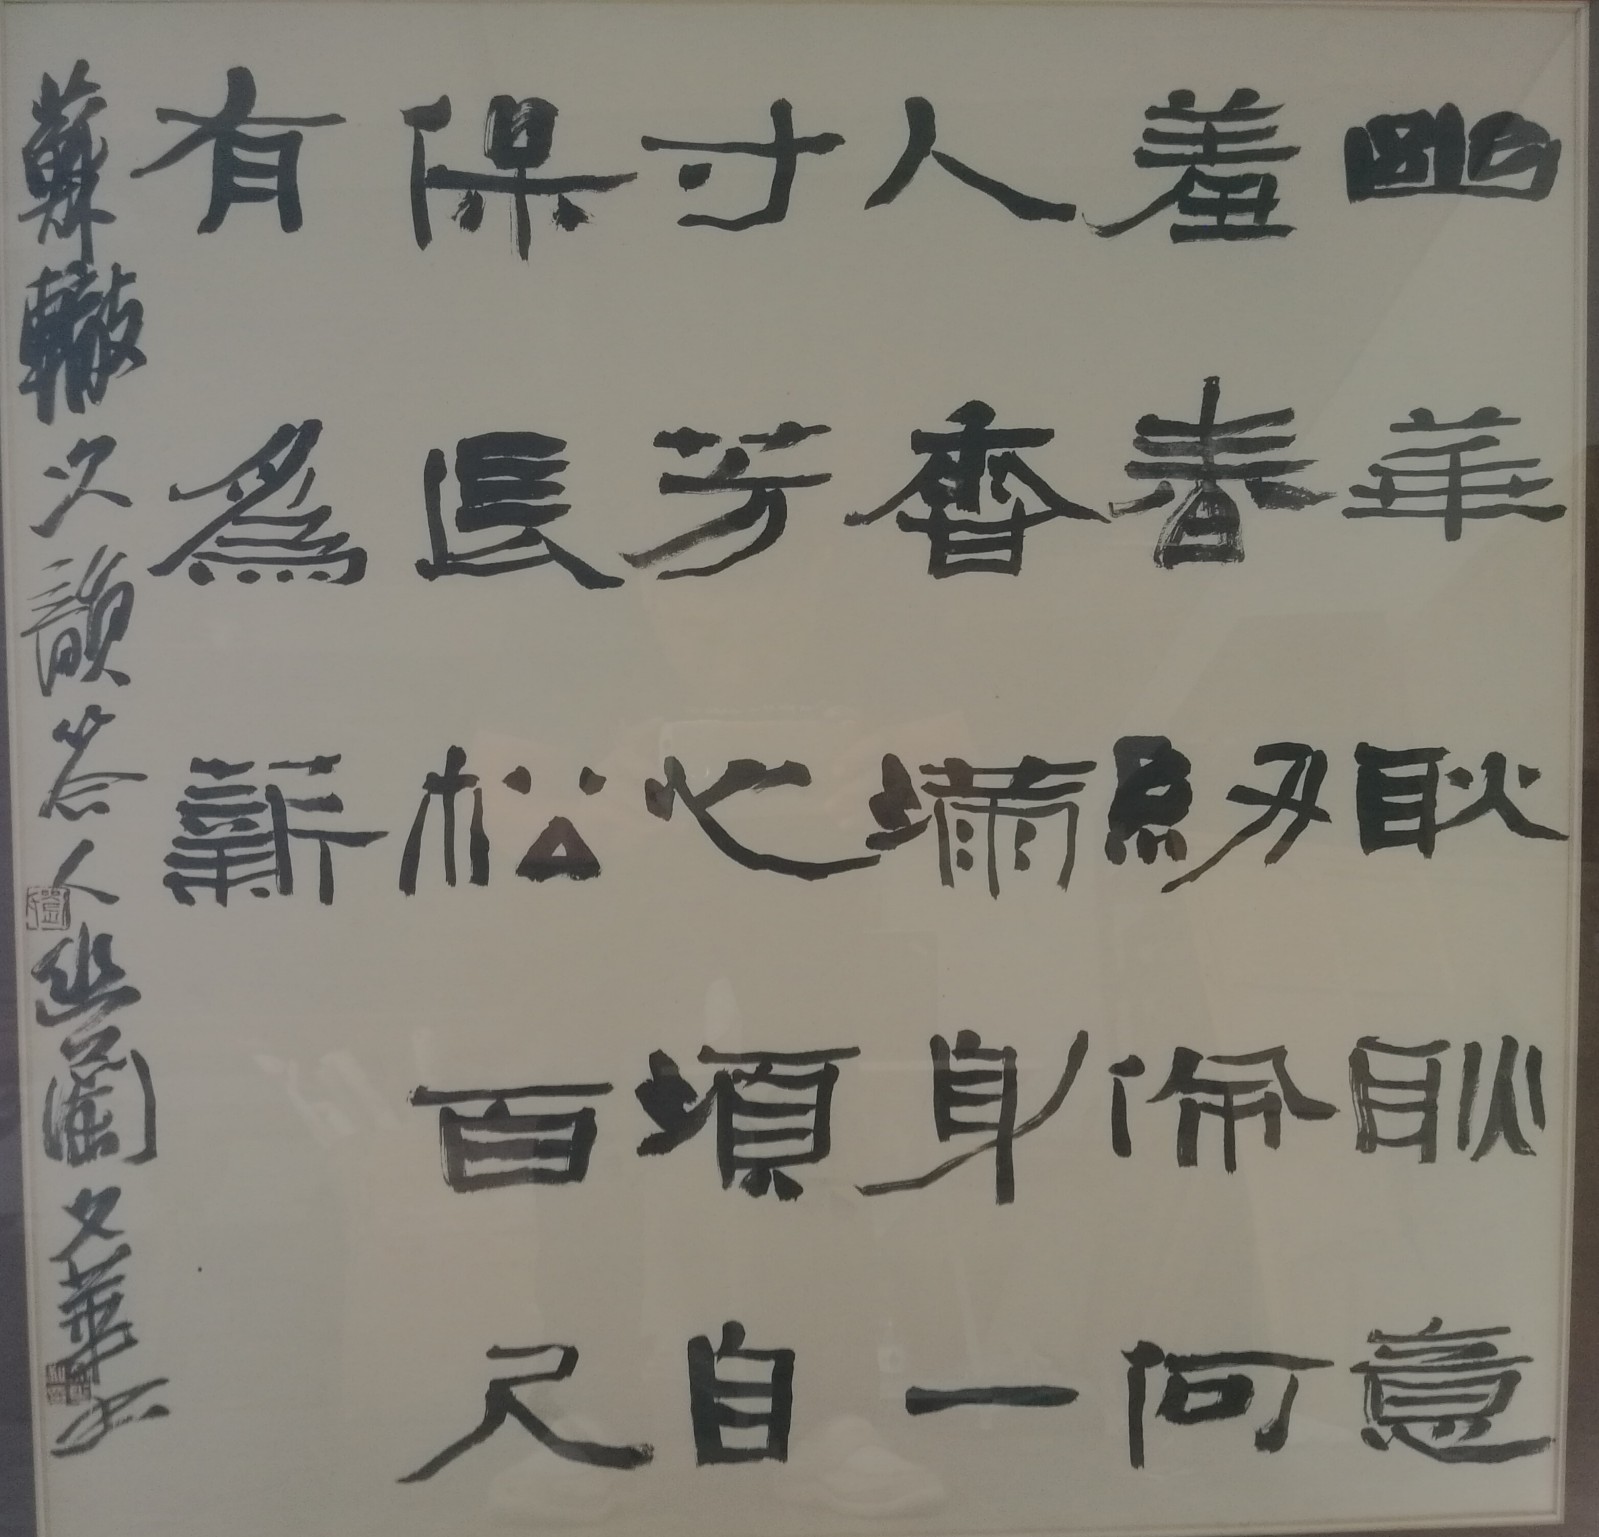 幽華耿耿意
羞春紉佩何
人香滿身一
寸芳心須自
保長松百尺
有爲薪
蘇轍次韻答人幽蘭文華书